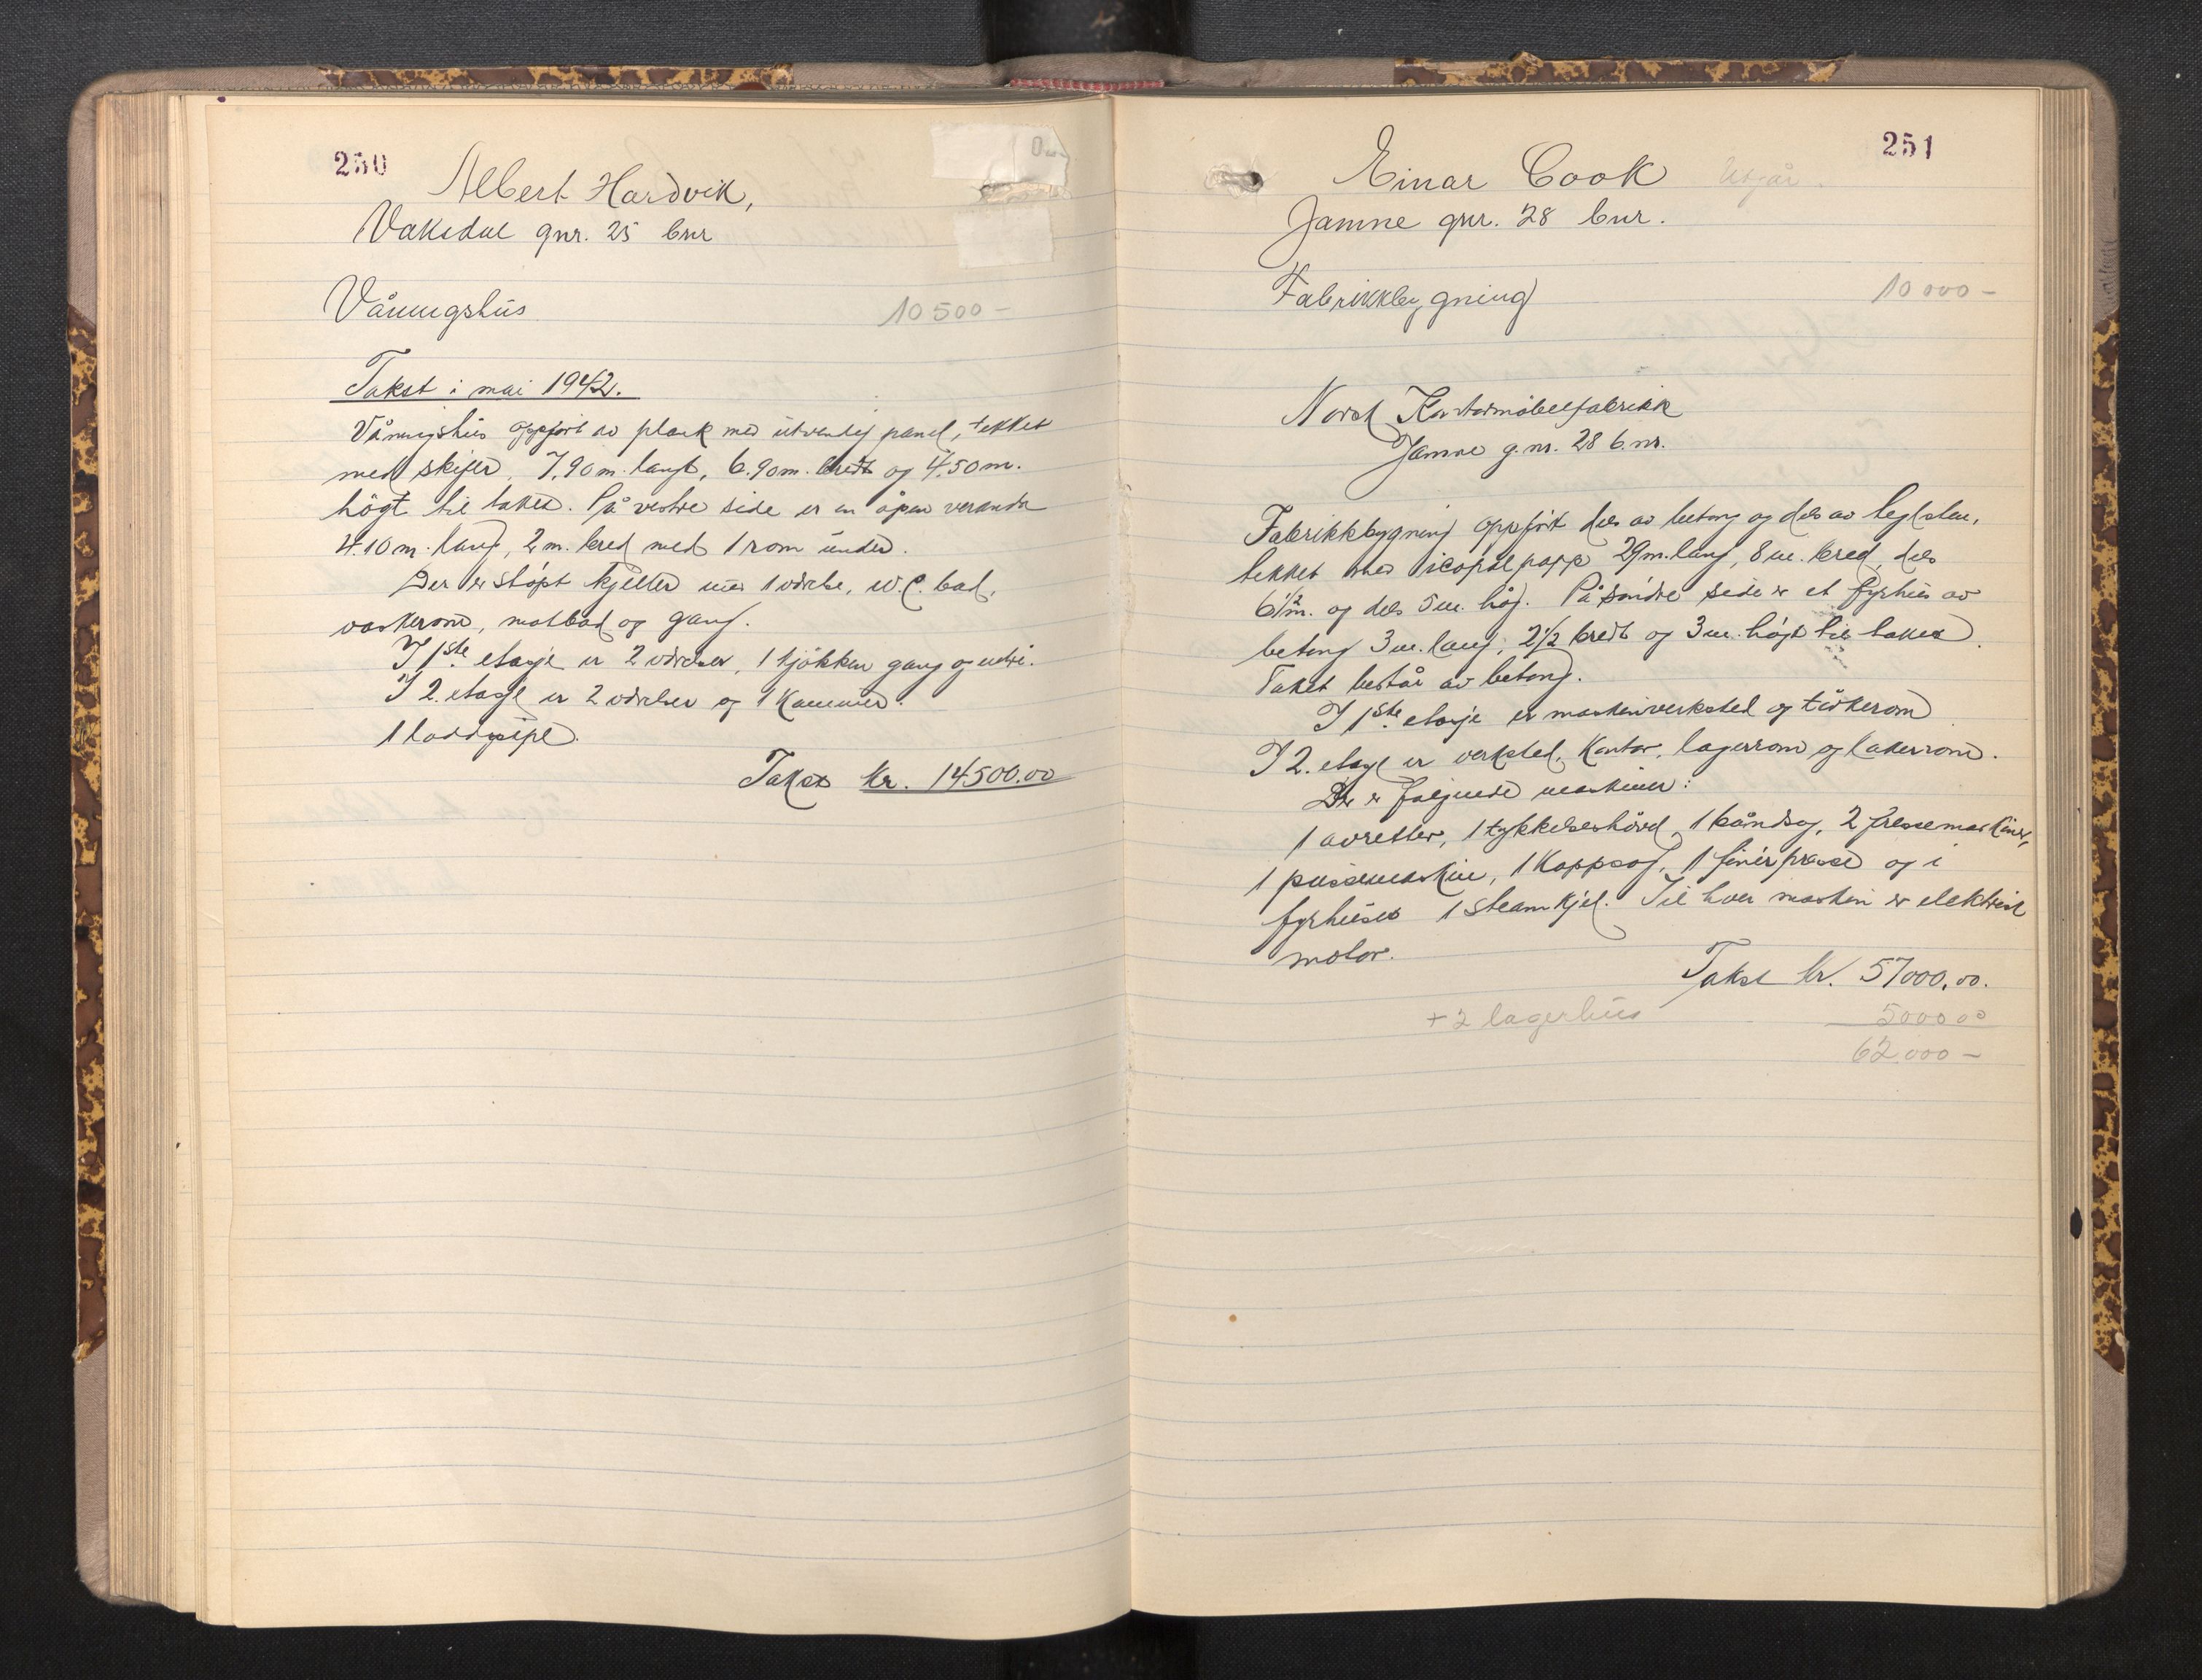 250
Albert Hardvik,
Vaksdal gnr. 25 bnr
Våningshus 10500-
Takst i mai 1942.
Våningshus oppført av plank med utvendig panel, tekket
med skifer, 7,90 m. langt, 6.90 m. bredt og 4.50 m.
högt til taket. På vestre side er en åpen veranda
4.10 m. lang, 2 m. bred med 1 rom under.
Der er støpt kjeller med 1 værelse, W.C. bad,
vaskerom, matbod og gang.
I 1ste etasje er 2 værelser, 1 kjøkken gang og entre.
I 2. etasje er 2 værelser og 1 kammer.
1 loddpipe.
Takst kr. 14500.00
251
Einar Cook Utgår.
Jamne gnr. 28 bnr.
Fabrikkbygning 10 000 -
Norsk Kontormöbelfabrikk
Jamne g.nr. 28 b.nr.
Fabrikkbygning oppført dels av betong og dels av teglsten,
tekket med icopalpapp 29 m. lang, 8 m. bred, dels
6 1/2 m. og dels 5 m. høg. På søndre side er et fyrhus av
betong 3 m. lang, 2 1/2 bredt og 3 m. högt til taket.
Taket består av betong.
I 1ste etasje er maskinverksted og tørkerom
I 2. etasje er verksted, kontor, lagerrom og lakerrom.
Der er følgende maskiner:
1 avretter, 1 tykkelseshövel, 1 båndsag, 2 fresemaskiner,
1 pussemaskin, 1 kappsag, 1 finérpresse og i
fyrhuset 1 steamkjel. Til hver maskin er elektrisk
motor.
Takst kr. 57000.00.
+ 2 lagerhus 5000 00
62 000 -